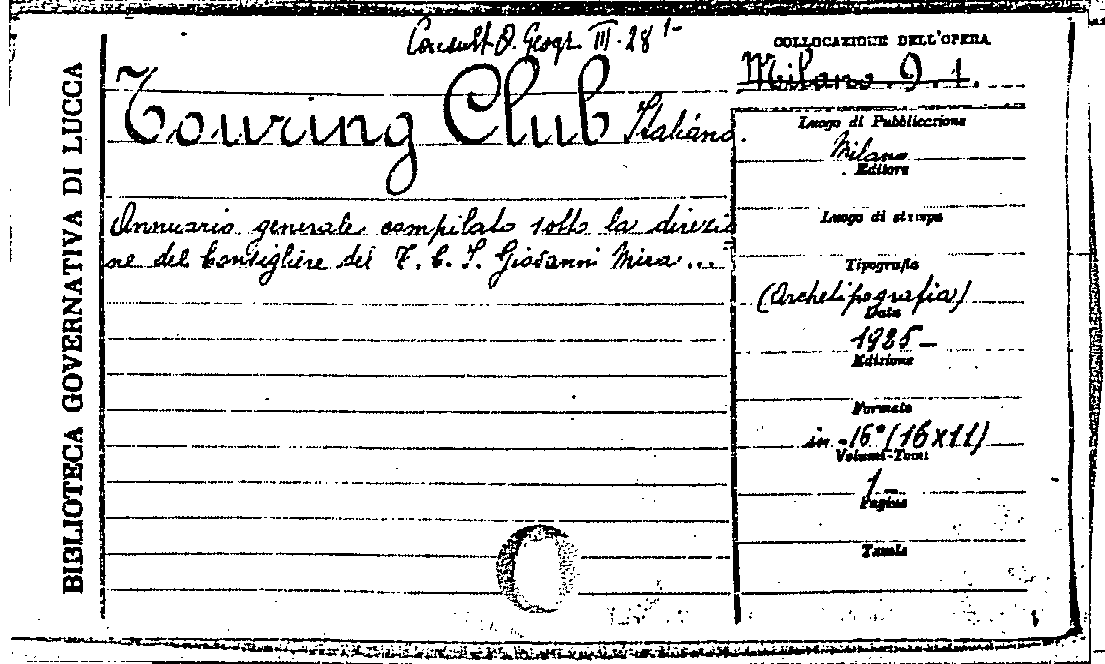 BIBLIOTECA GOVERNATIVA DI LUCCA
Consult. O. Geogr. III. 28 1-
Touring Club Italiano.
Annuario generale compilato sotto la direzio
ne del Consigliere del T. C. I. Giovanni Mira...
COLLOCAZIONE DELL'OPERA
Milano. 9. 1.
Luogo di Pubblicazione
Milano
Editore
Luogo di stampa
Tipografia
(Archetipografia)
Data
1925-
Edizione
Formato
in-16° (16x11)
Volumi-Tomi
1-
Pagine
Tavole